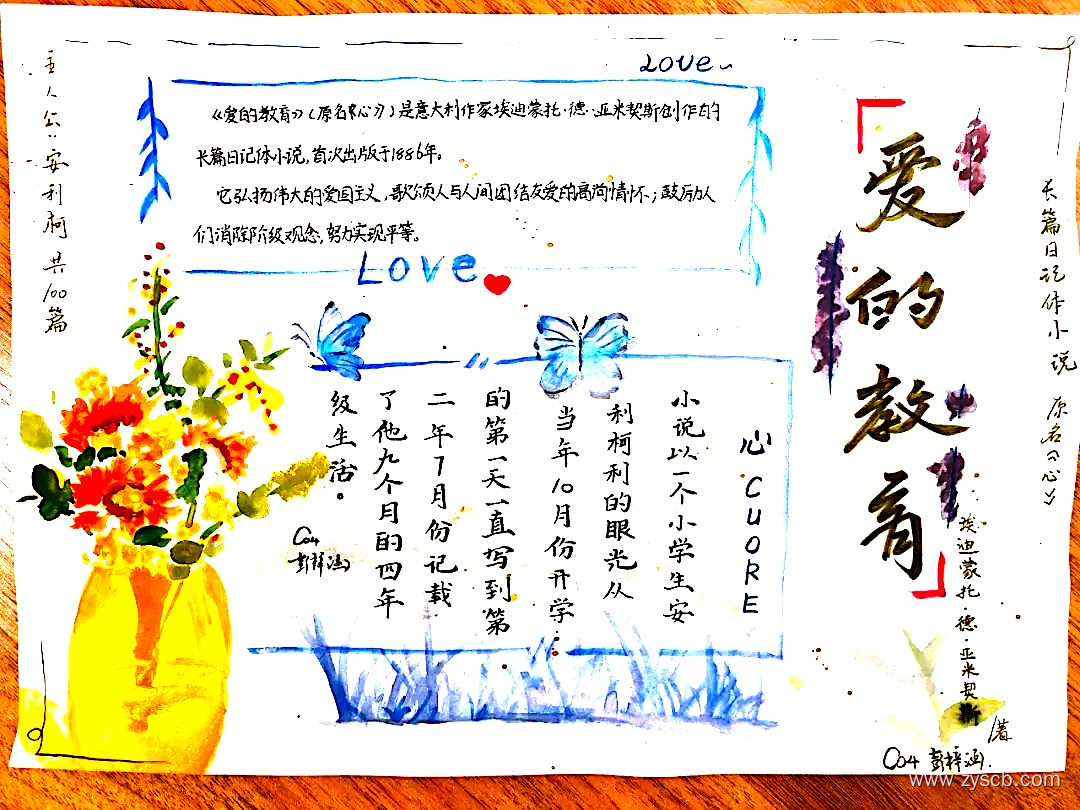 Love~
《爱的教育》(原名《心》)是意大利作家埃迪蒙托·德·亚米契斯创作的
长篇日记体小说,首次出版于1886年。
它弘扬伟大的爱国主义,歌颂人与人间团结友爱的高尚情怀;鼓励人
们消除阶级观念,努力实现平等。
Love
爱的教育
长篇日记作小说 原名《心》
埃迪蒙托·德·亚米契斯/著
C04 彭梓涵.
心 CUORE
小说以一个小学生安
利柯利的眼光从
当年10月份开学
的第一天一直写到第
二年7月份记载
了他九个月的四年
级生活。
C04
彭梓涵
主人公:安利柯 共100篇
www.zyscb.com